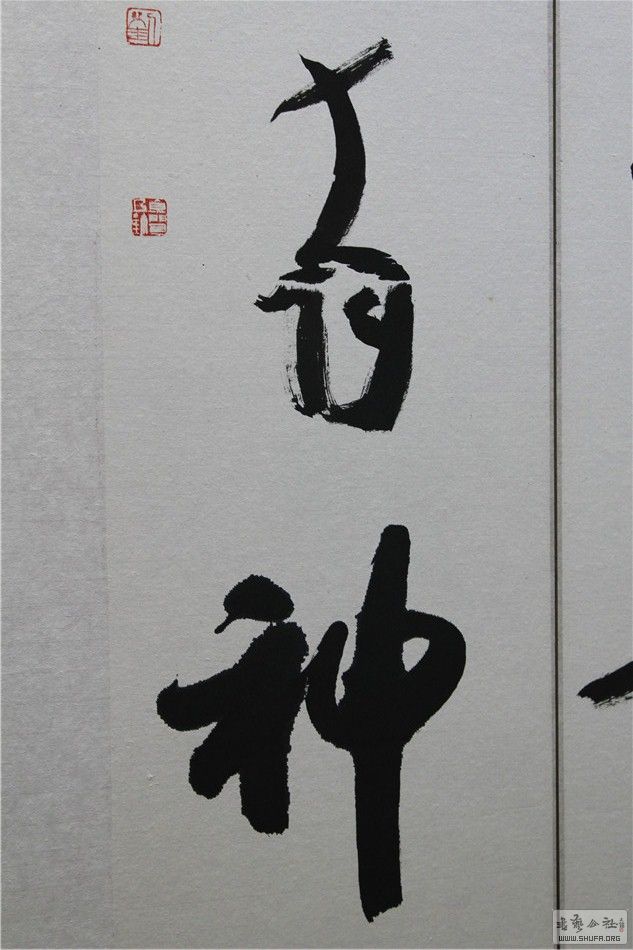 有神
書藝公社
WWW.SHUFA.ORG